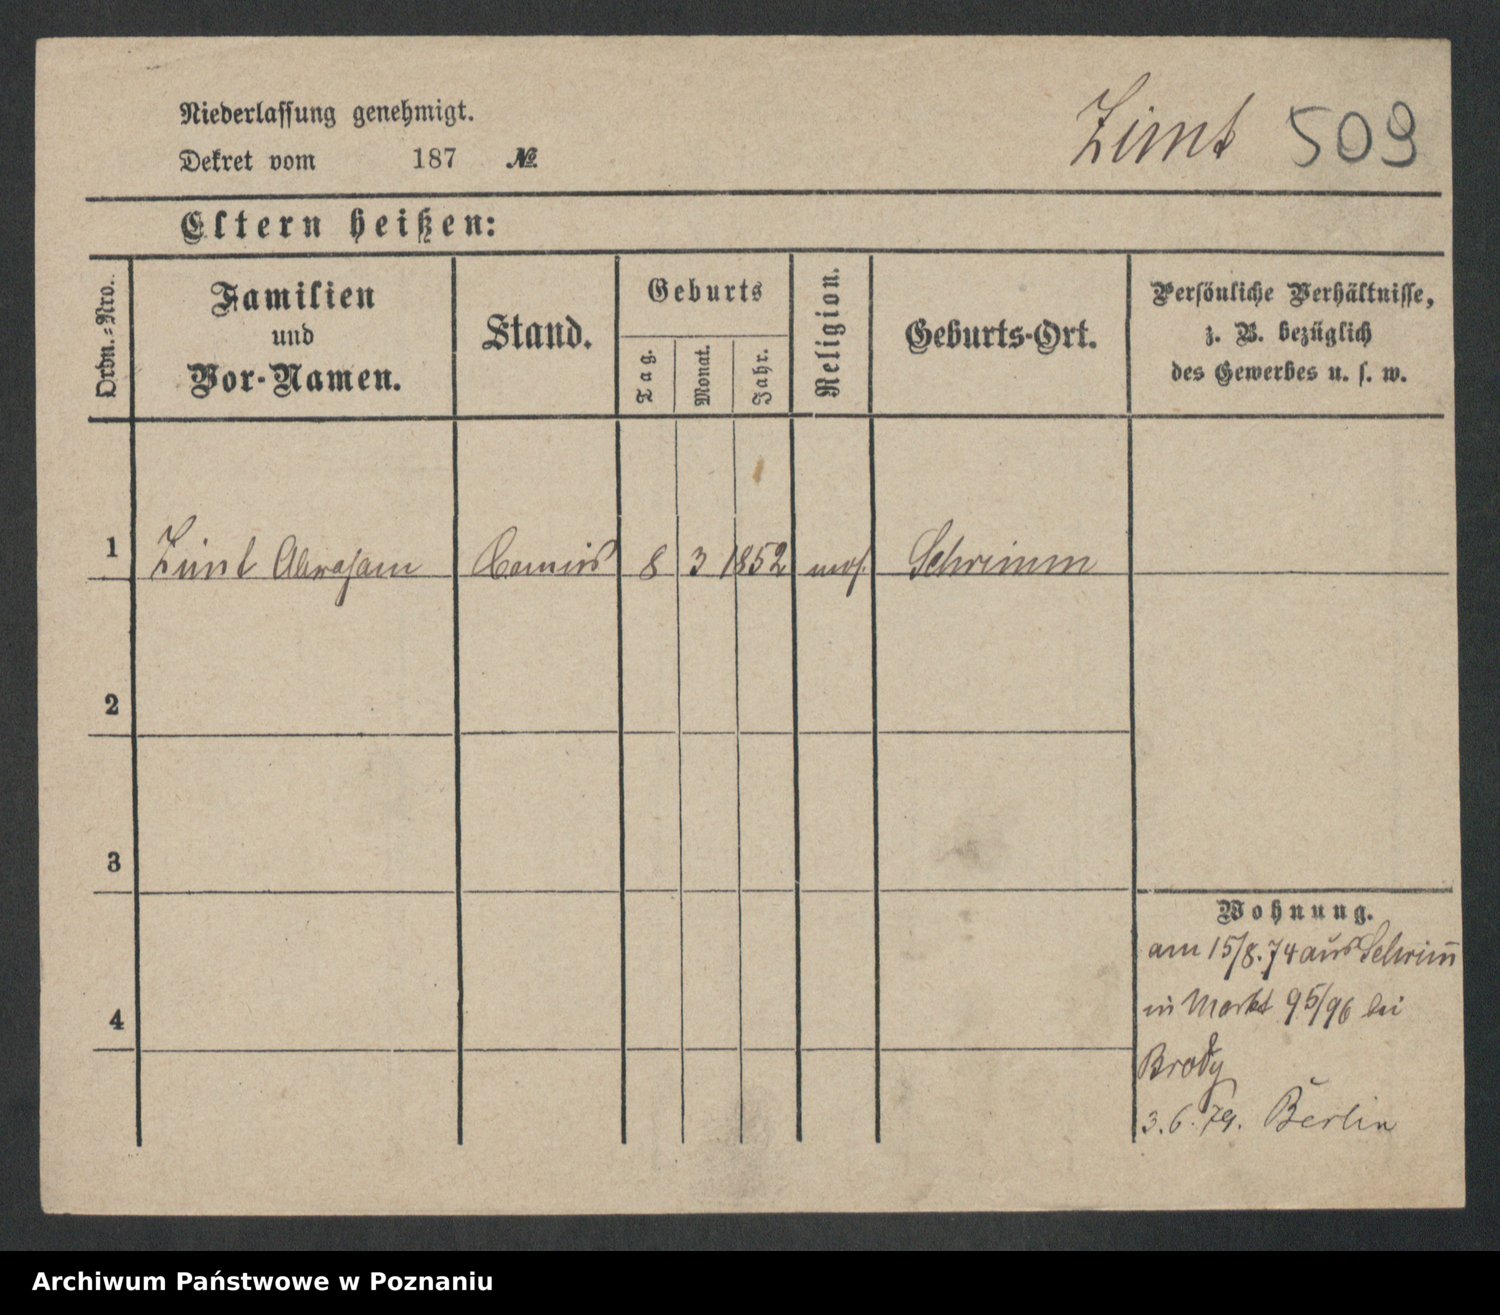 Niederlassung genehmigt.
Zimt 509
Dekret vom 187 №
Eltern heißen:
Ordn.-Nro.
Familien
und
Vor-Namen.
Stand.
Geburts
Tag.
Monat.
Jahr.
Religion.
Geburts-Ort.
Persönliche Verhältnisse,
z. B. bezüglich
des Gewerbes u. s. w.
1 Zimt Abraham Commis 8 3 1852 mos. Schrimm
2
3
4
Wohnung.
am 15/8.74 aus Schrim̄
in Markt 95/96 bei
Brody
3.6.79. Berlin
Archiwum Państwowe w Poznaniu